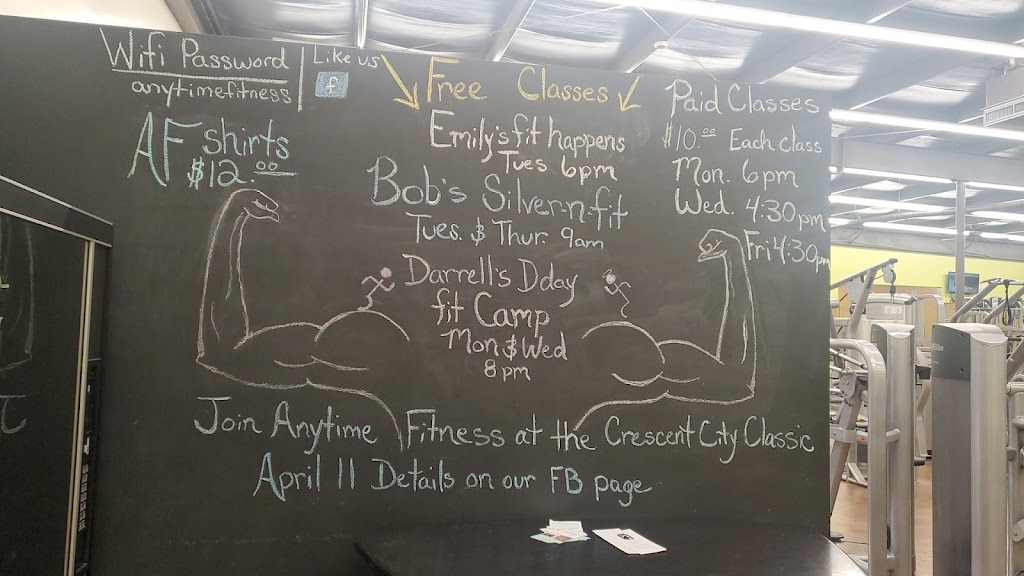 Wifi Password
anytimefitness
Like us
f
AF shirts
$12.00
Free Classes
Emily's fit happens
Tues 6pm
Bob's Silver-n-fit
Tues. $ Thur. 9am
Darrell's Dday
fit Camp
Mon $ Wed
8pm
Paid Classes
$10.00 Each class
Mon. 6pm
Wed. 4:30pm
Fri 4:30pm
Join Anytime Fitness at the Crescent City Classic
April 11 Details on our FB page